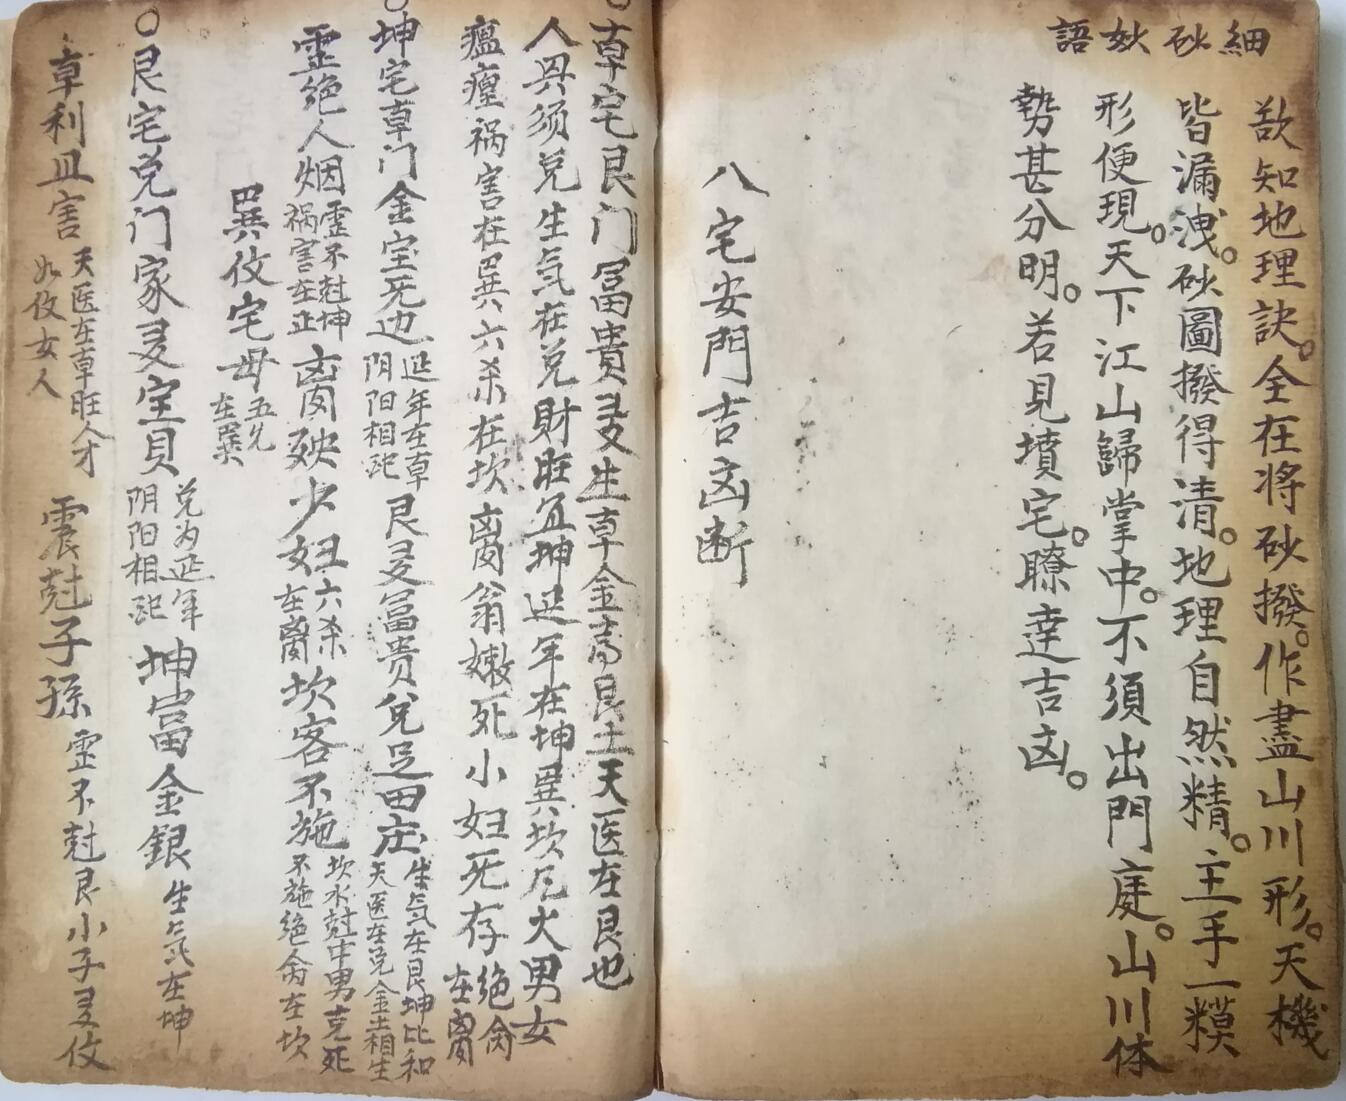 細砂妙語
欲知地理訣。全在將砂撥。作盡山川形。天機
皆漏洩。砂圖撥得清。地理自然精。主手一糢
形便現。天下江山歸掌中。不須出門庭。山川体
勢甚分明。若見墳宅。瞭達吉凶。
八宅安門吉凶断
○草宅艮门冨貴叐生草金高艮土天医在艮也
人興须兑生気在兑財旺宜坤延年在坤巽坎凡火男女
瘟瘽祸害在巽六杀在坎离翁嫩死小妇死存绝命在离
○坤宅草门金宝无边延年在草阴阳相配艮叐冨贵兑足田庄生気在艮坤比和天医在兑金土相生
霊绝人烟霊不尅坤祸害在正离殃少妇六杀在离坎客不施坎水尅中男克死不施绝命在坎
巽伩宅毋五鬼在巽
○艮宅兑门家叐宝贝兑为延年阴阳相配坤富金銀生氣在坤
草利且害天医在草旺人才如伩女人震尅子孫霊不尅艮小子叐伩